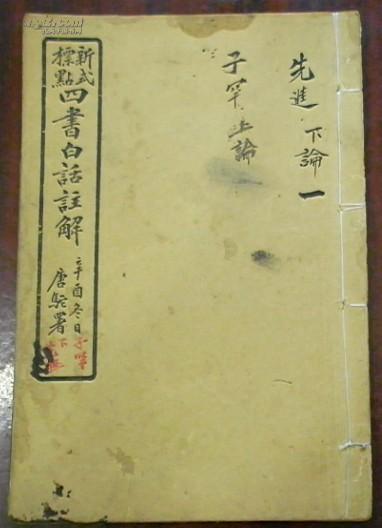 先進 下論 一
子罕上論
新式標點四書白話註解
辛酉冬日
唐駝署